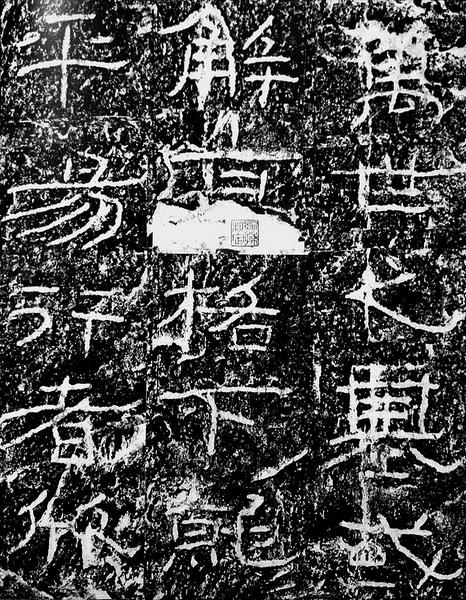 萬世之基或
解高格下就
平易行者欣